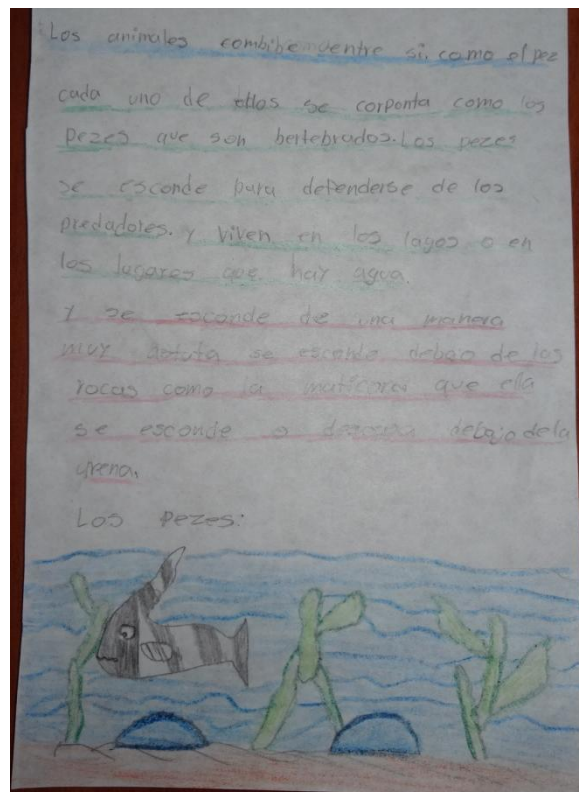 Los animales combiben entre si, como el pez
cada uno de ellos se corponta como los
pezes que son bertebrados. Los pezes
se esconde para defenderse de los
predadores. y viven en los lagos o en
los lugares que hay agua.
Y se esconde de una manera
muy astuta se esconde debajo de las
rocas como la que ella
se esconde o debajo de la
arena.
Los pezes: